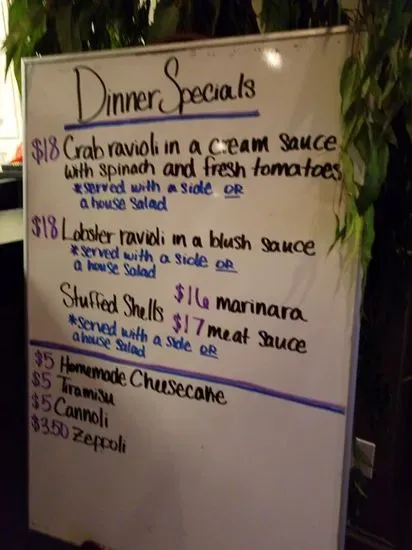 Dinner Specials
$18 Crab ravioli in a cream sauce
with spinach and fresh tomatoes
*served with a side OR
a house salad
$18 Lobster ravioli in a blush sauce
*served with a side OR
a house salad
Stuffed Shells $16 marinara
*served with a side OR $17 meat sauce
a house salad
$5 Homemade Cheesecake
$5 Tiramisu
$5 Cannoli
$3.50 Zeppoli